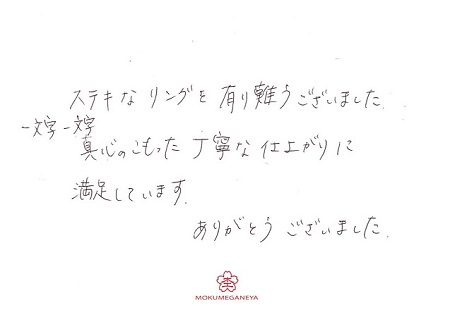 ステキなリングを有り難うございました.
一文字一文字
真心のこもった丁寧な仕上がりに
満足しています.
ありがとうございました.
杢
MOKUMEGANEYA